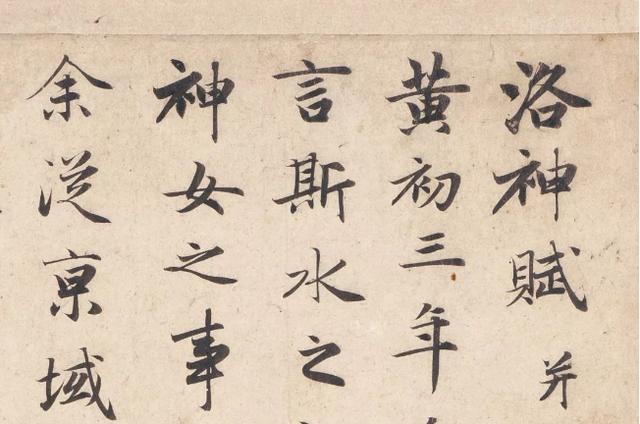 洛神賦并
黄初三年
言斯水之
神女之事
余从京域